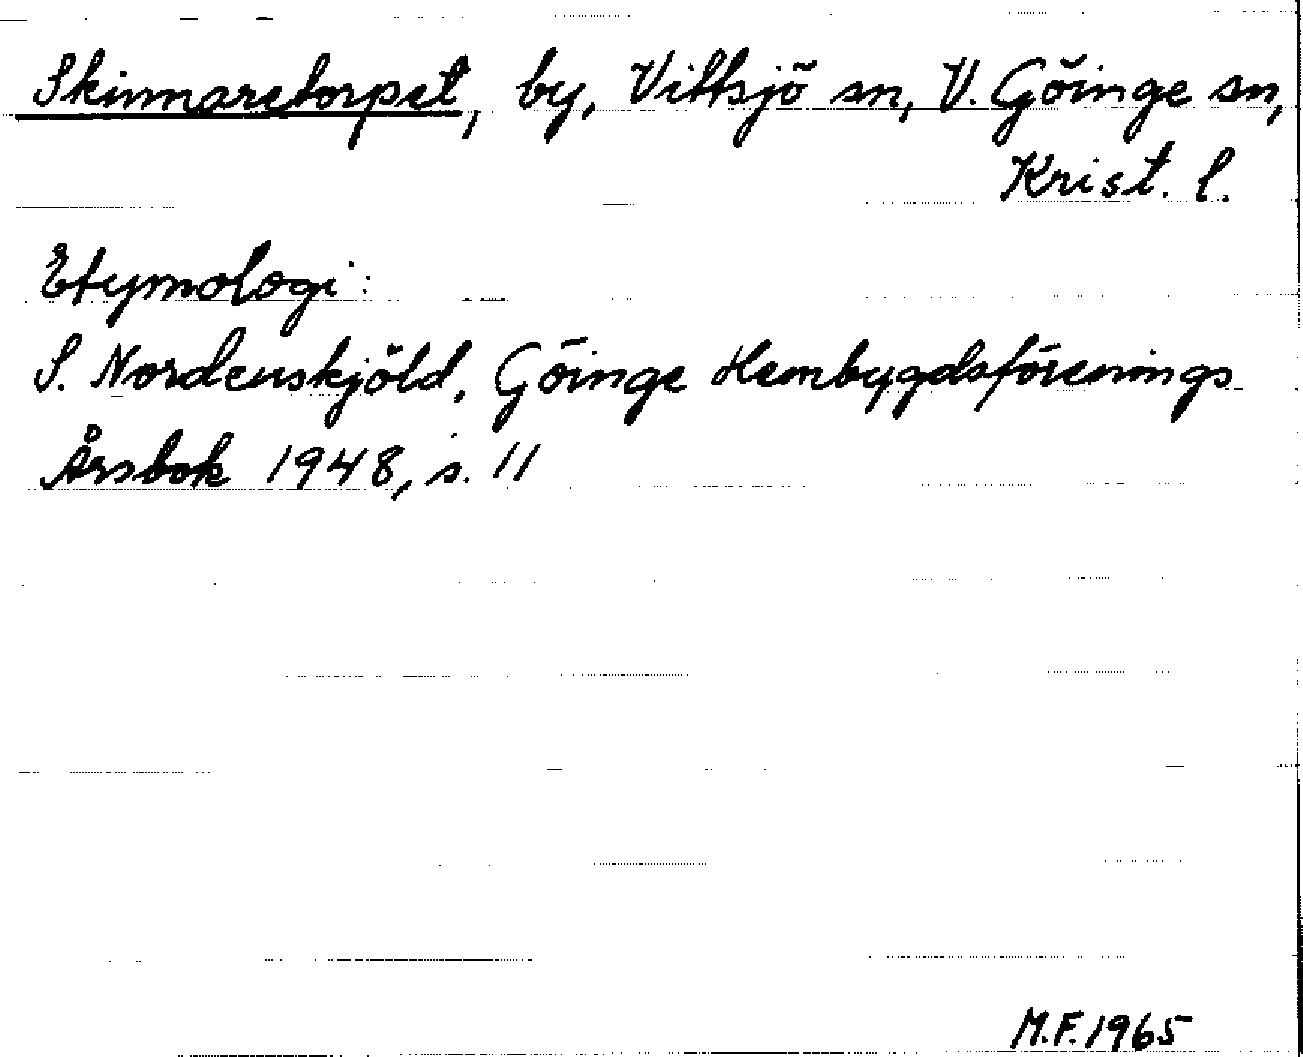 Skinnaretorpet, by, Vittsjö sn, V. Göinge sn,
Krist. l.
Etymologi:
S. Nordenskjöld, Göinge Hembygdsförenings
Årsbok 1948, s. 11
M.F. 1965